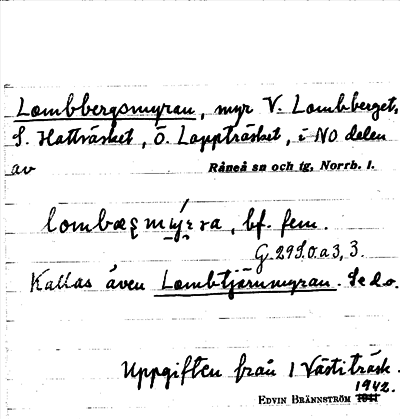 Lombbergsmyran, myr V. Lombberget,
S. Hatträsket, Ö. Lappträsket, i NO delen
av Råneå sn och tg, Norrb. l.
lombæʀmýʀa, bf. fem.
G 29S.0.a3, 3.
Kallas även Lombtjärnmyran. Se d.o.
Uppgiften från 1 Västiträsk.
1942.
EDVIN BRÄNNSTRÖM 1941